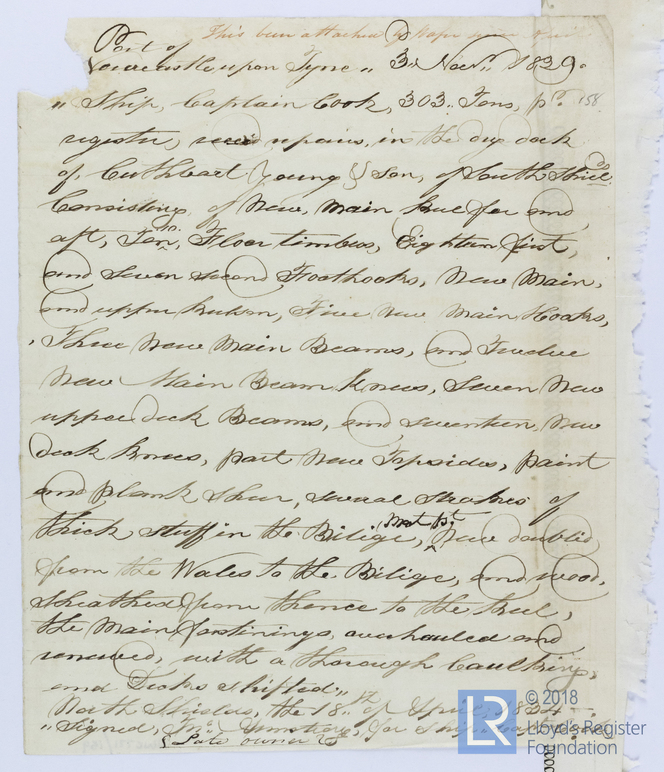 This been attached
Port of
Newcastle upon Tyne „ 3d Novr. 1839.
„ Ship, Captain Cook, 303 „ Tons, pr. 158
register, repairs, in the dry dock
of, Cuthbart Young & Son, of South Shields
Consisting, of New, Main Keel for and,
aft, Ten, No. Floor timbers, Eighteen first,
and seven second Foothooks, New Main,
and upper Kulson, Five New Main Hooks,
Three New Main Beams, and Twelve
New Main Beam Knees, Seven New
upper deck Beams, and seventeen, New
deck knees, part New Topsides, paint
and plank shear, several strakes of
thick stuff in the Bilige, Most pt. New doubled,
from the Wales to the Bilige, and wood,
sheathed from thence to the Keel,
the Main fastinings, overhauled and
renewed, with a thorough Caulking,
and Decks shifted „
North Shields, the 18th of April, 1834
„ Signed, Jno. Armstrong, for Ship
Late owner
LR
© 2018
Lloyd's Register
Foundation